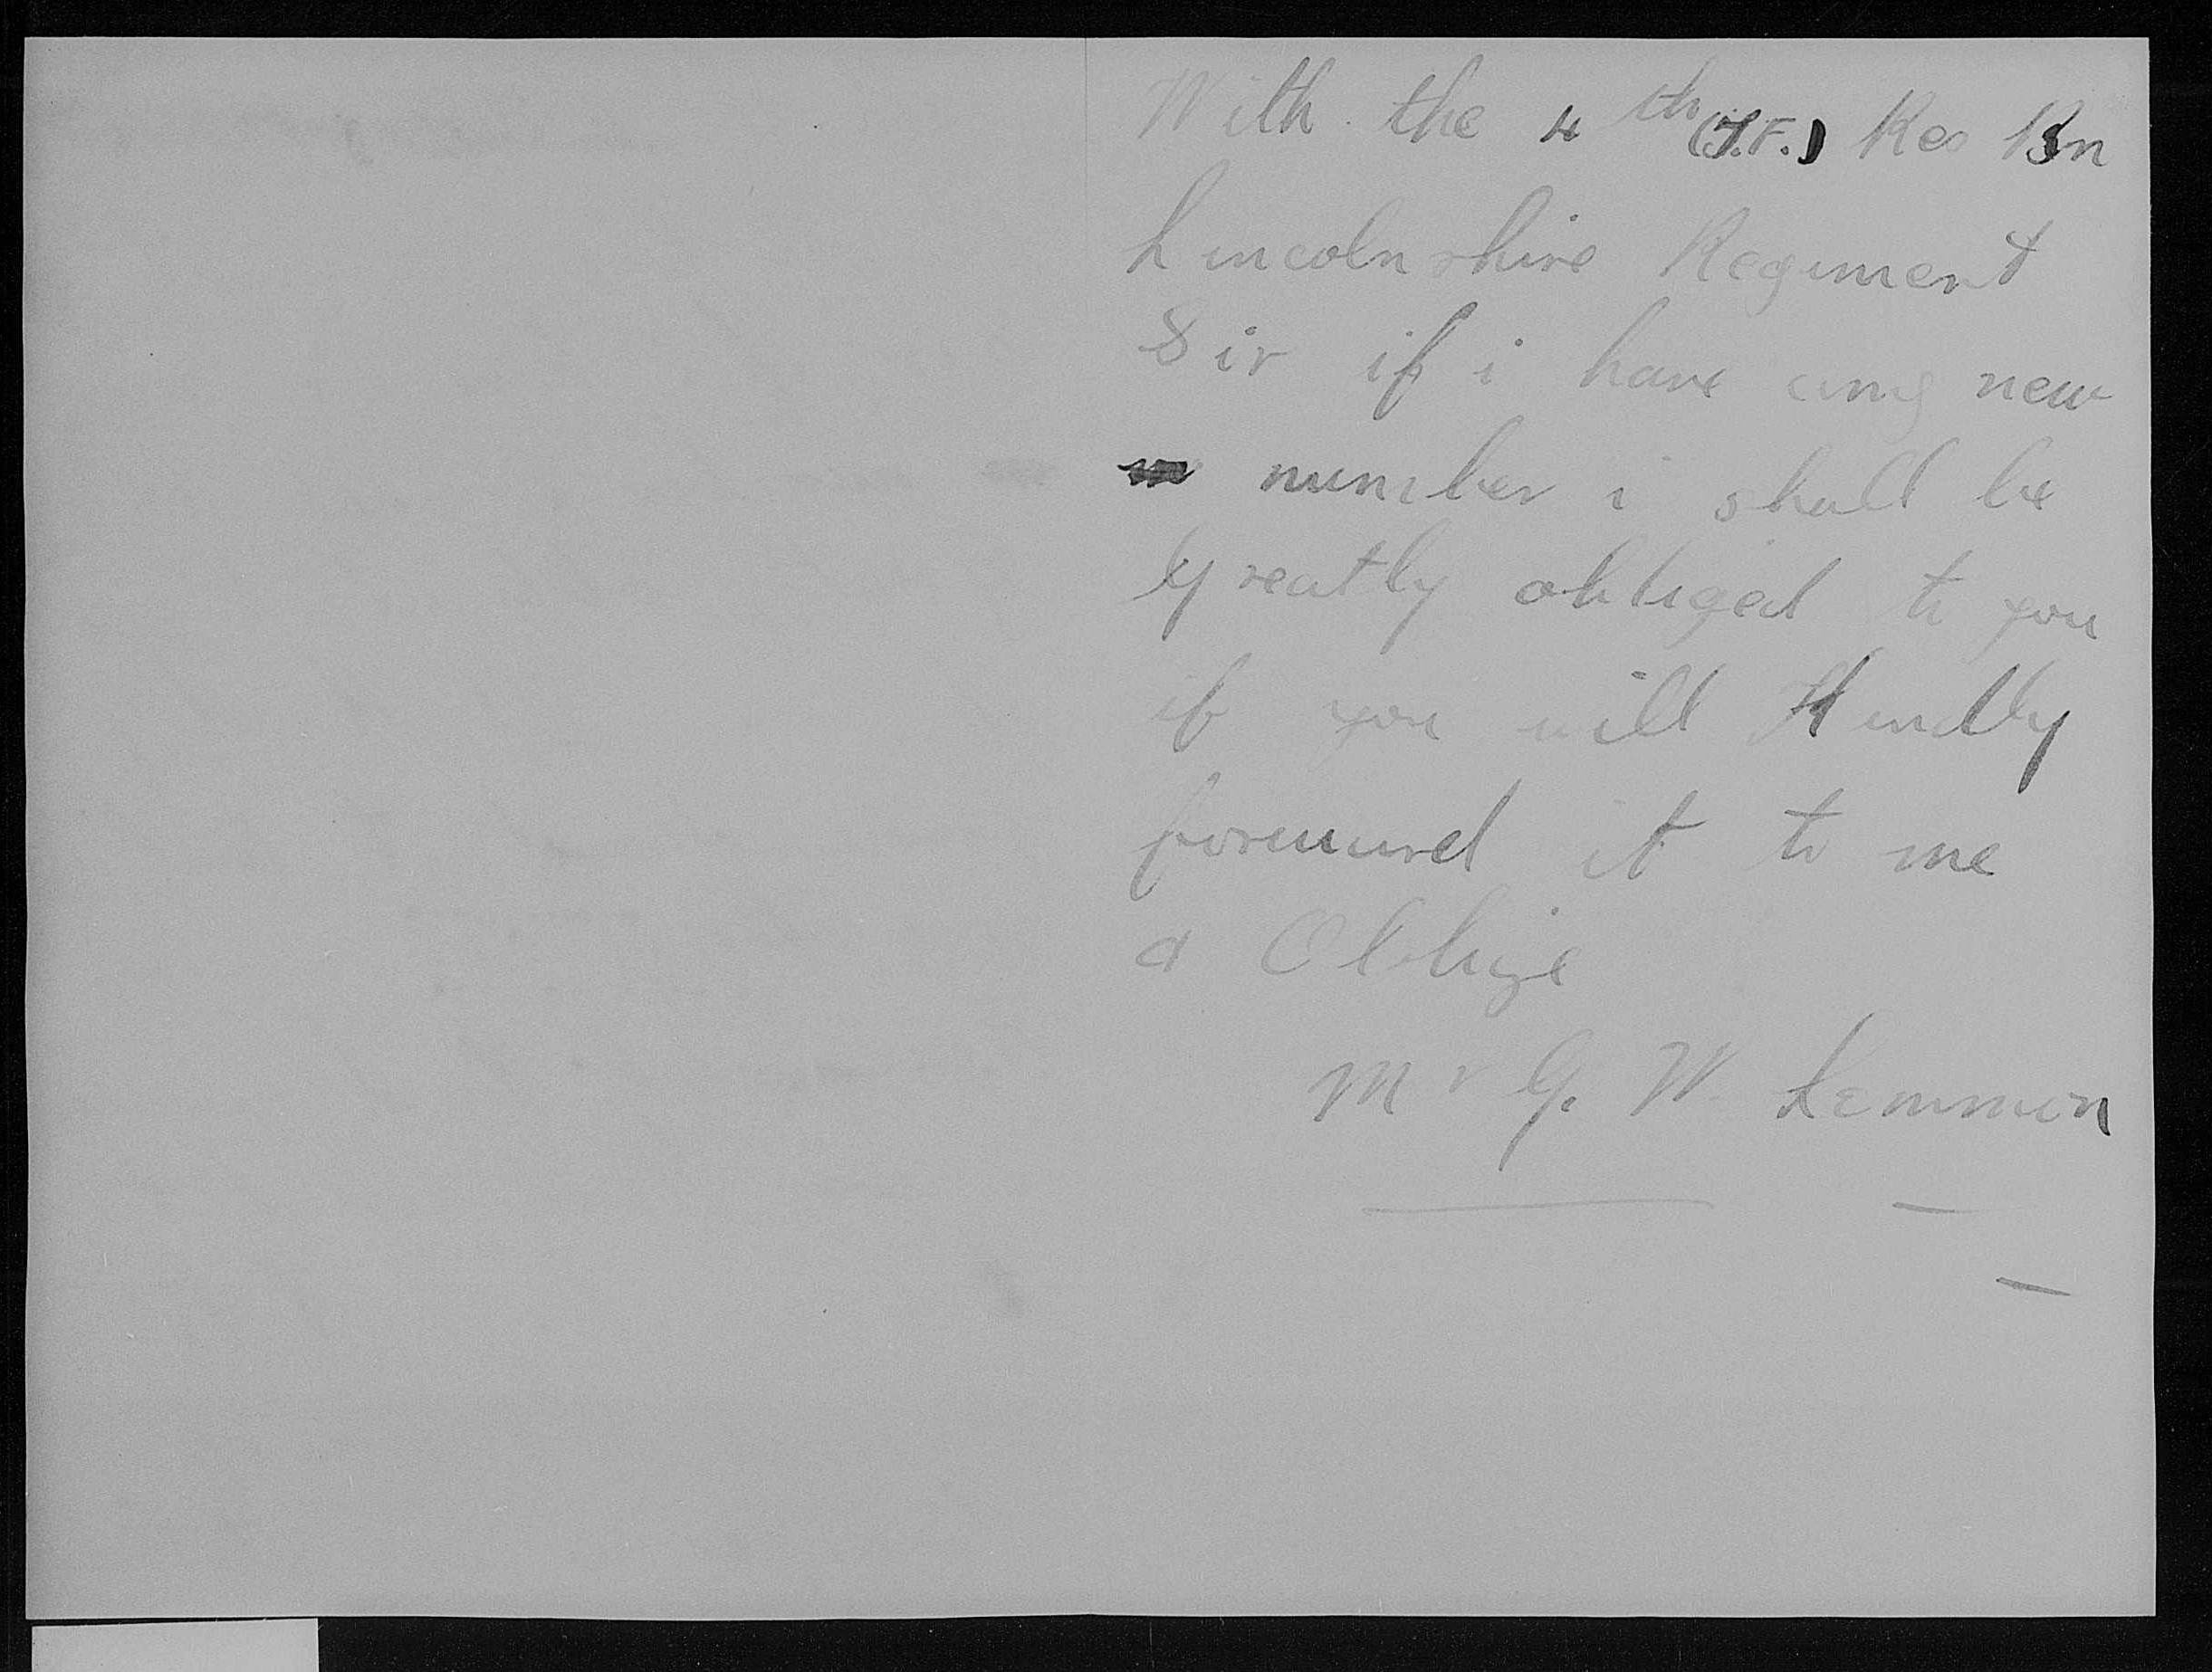 With the 4th (T.F.) Res Bn
Lincolnshire Regiment
Sir if i have any new
number i shall be
Greatly obliged to you
if you will Kindly
forward it to me
& Oblige
Mr G. W. Lemmon